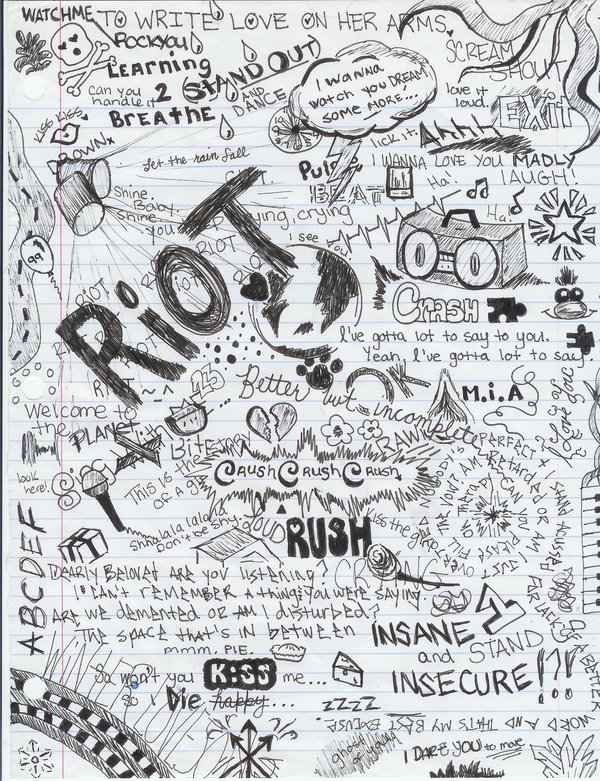 WATCHME
TO WRITE LOVE ON HER ARMS.
ROCKYOU
Learning
Can you
handle it
2
STAND OUT
AND
DANCE
BREATHE
KISS KISS
DROWN
I WANNA
watch you DREAM
some MORE...
SCREAM
SHOUT
love it
loud.
EXIT
lick it.
Ahhh
let the rain fall
Pulse
I WANNA LOVE YOU MADLY
BEAT
LAUGH!
Ha!
Ha!
Shine
Baby,
Shine
you
crying, crying
I see you
RIOT
RIOT
RIOT
99
CRASH
I've gotta lot to say to you.
Yeah, I've gotta lot to say
Better but incomplete
M.i.A
Welcome to
the
PLANET
with
Bite
look
here!
This is the
of a
CRUSH CRUSH CRUSH
Shalalalala
Don't be shy
LOUD
RUSH
Kiss the girl
ABCDEF
DEARLY BELOVED ARE YOU LISTENING?
I CAN'T REMEMBER A THING YOU WERE SAYING
ARE WE DEMENTED OR AM I DISTURBED?
THE SPACE THAT'S IN BETWEEN
INSANE
and STAND
INSECURE!?!
mmm, PIE.
So won't you KISS me...
So I Die happy...
zzzz
WORD AND THAT'S MY BEST EXCUSE
I DARE YOU to move
ghost of you